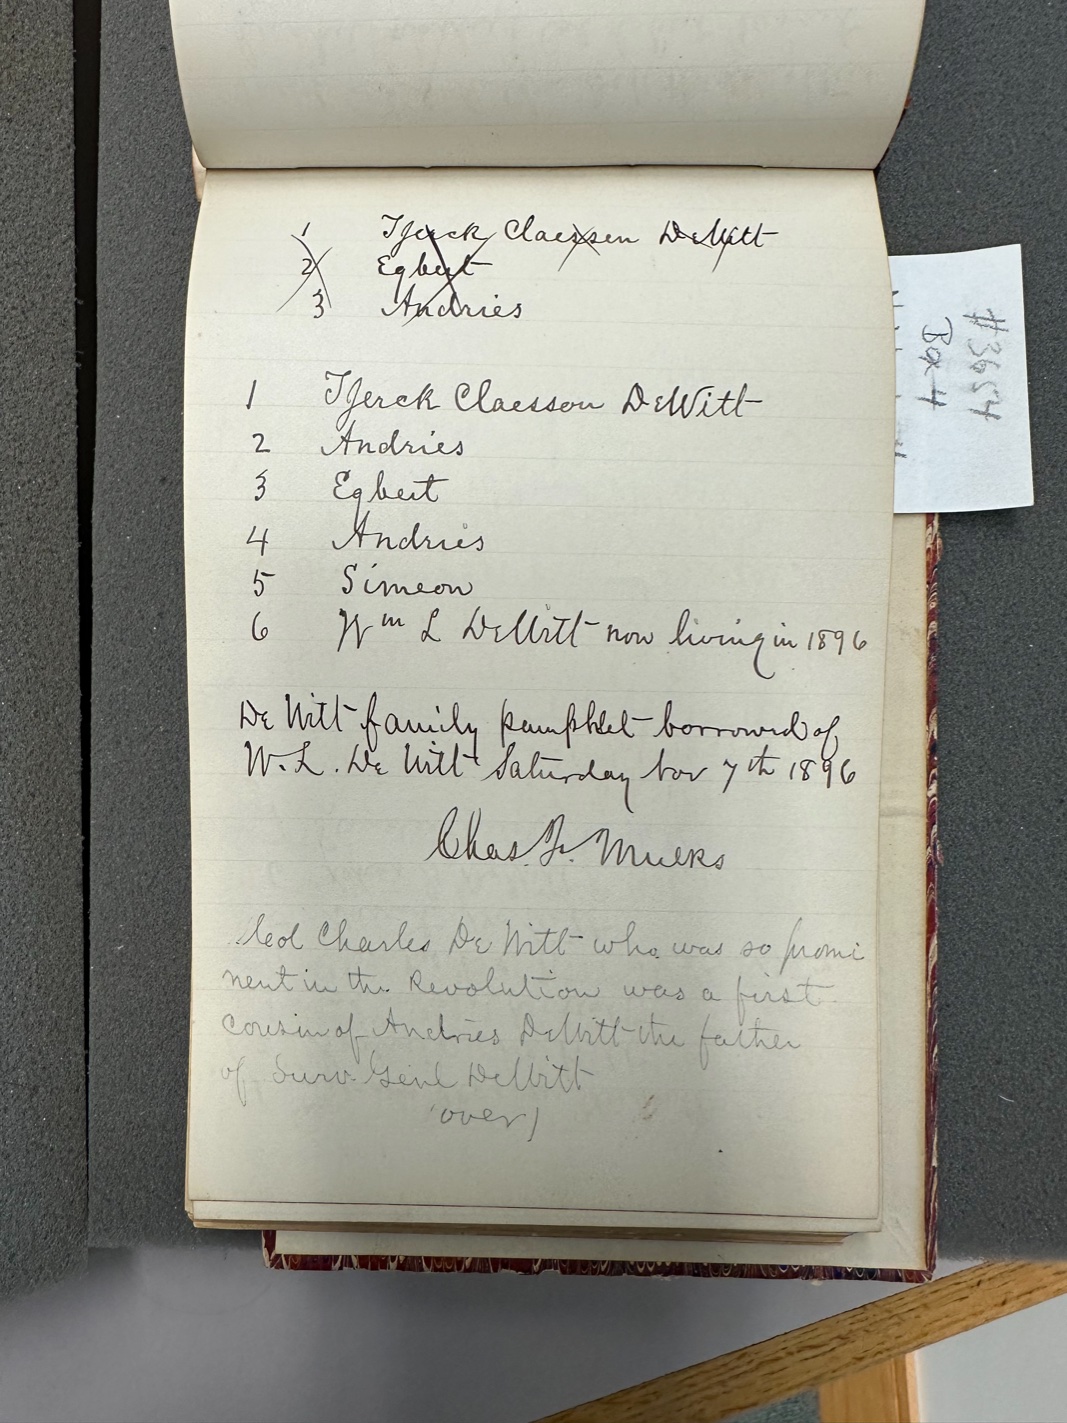 1 Tjerck Claessen DeWitt
2 Egbert
3 Andries
1 Tjerck Claesson DeWitt
2 Andries
3 Egbert
4 Andries
5 Simeon
6 Wm L DeWitt now living in 1896
De Witt family pamphlet borrowed of
W. L. De Witt Saturday Nov 7th 1896
Chas. F. Mulks
Col Charles De Witt who was so promi
nent in the Revolution was a first
cousin of Andries DeWitt the father
of Surv. Genl DeWitt
(over)
#3654
Box 4